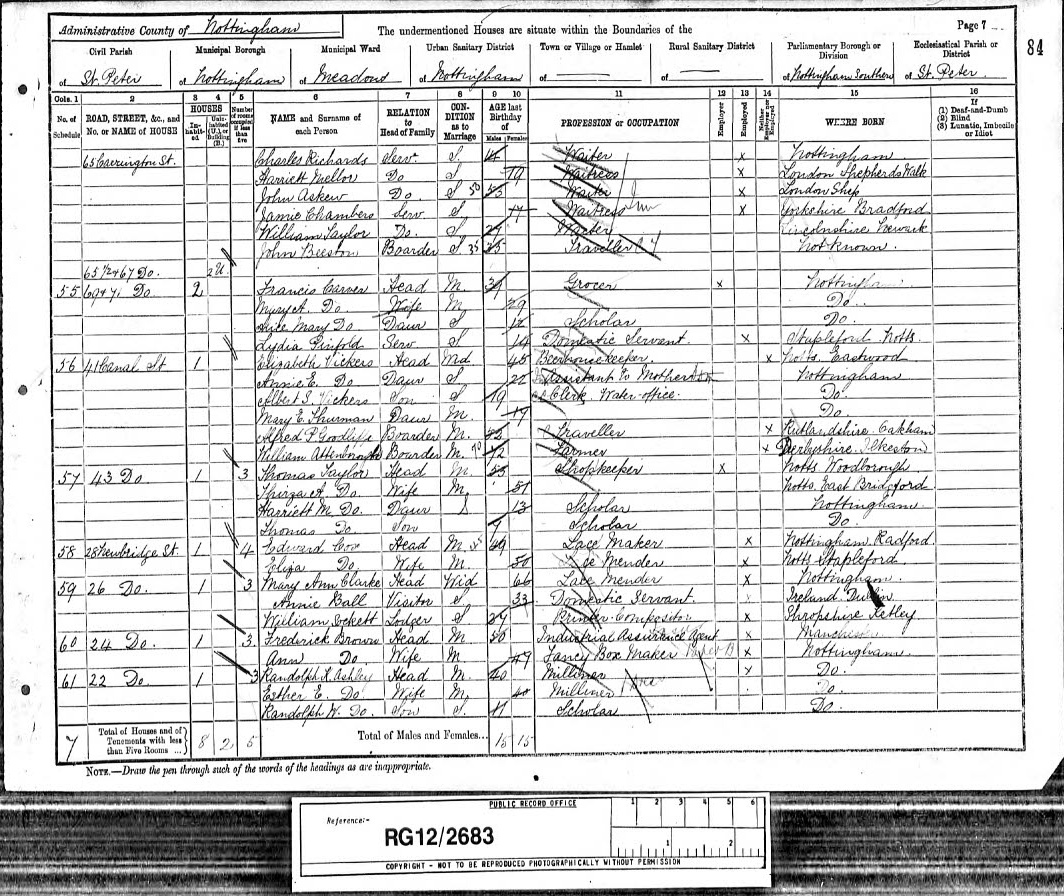 Administrative County of Nottingham
The undermentioned Houses are situate within the Boundaries of the
Page 7
84
Civil Parish
Municipal Borough
Municipal Ward
Urban Sanitary District
Town or Village or Hamlet
Rural Sanitary District
Parliamentary Borough or Division
Ecclesiastical Parish or District
of St. Peter
of Nottingham
of Meadows
of Nottingham
of —
of —
of Nottingham Southern
of St. Peter
Cols. 1 2 3 4 5 6 7 8 9 10 11 12 13 14 15 16
No. of Schedule
ROAD, STREET, &c., and No. or NAME of HOUSE
HOUSES
In-habit-ed
Unin-habited (U.), or Building (B.)
Number of rooms occupied if less than five
NAME and Surname of each Person
RELATION to Head of Family
CON-DITION as to Marriage
AGE last Birthday of
Males Females
PROFESSION or OCCUPATION
Employer
Employed
Neither Employer nor Employed
WHERE BORN
If
(1) Deaf-and-Dumb
(2) Blind
(3) Lunatic, Imbecile or Idiot
65 Carrington St. Charles Richards Serv. S. Waiter x Nottingham
Harriett Mellor Do S 19 Waitress x London Shepherds Walk
John Askew Do. S Waiter x London Shep
Jamie Chambers Serv. S 17 Waitress x Yorkshire Bradford
William Taylor Do. S 27 Waiter Lincolnshire Newark
John Beeston Boarder S 35 Traveller Not known
65 1/2 & 67 Do. 2 U.
55 69 & 71 Do 2 Francis Carver Head M. 39 Grocer x Nottingham
Mary A. Do. Wife M. 29 Do.
Mary Do Daur S 12 Scholar Do.
Lydia Pinfold Serv S 14 Domestic Servant x Stapleford Notts.
56 41 Canal St 1 Elizabeth Vickers Head Wd. 45 Beerhouse keeper x Notts. Eastwood
Annie E. Do Daur S 22 Assistant to Mother Nottingham
Albert S. Vickers Son S 19 Clerk Water-office Do.
Mary E. Thurman Daur M. 19 Do
Alfred P. Goodliffe Boarder M. 42 Traveller x Rutlandshire. Oakham
William Attenborough Boarder M. 72 Farmer x Derbyshire. Ilkeston
57 43 Do 1 3 Thomas Taylor Head M 53 Shopkeeper x Notts Woodborough
Thirza A. Do. Wife M. 51 Notts. East Bridgford
Harriett M. Do Daur S 13 Scholar Nottingham
Thomas Do Son 9 Scholar Do.
58 28 Newbridge St. 1 4 Edward Cox Head M 49 Lace Maker x Nottingham Radford
Eliza Do Wife M. 50 Lace Mender x Notts Stapleford
59 26 Do. 1 3 Mary Ann Clarke Head Wid 66 Lace Mender x Nottingham
Annie Ball Visitor S 33 Domestic Servant x Ireland Dublin
William Lockett Lodger S 27 Printer-Compositor x Shropshire Ketley
60 24 Do. 1 3. Frederick Brown Head M 50 Industrial Assurance Agent x Manchester
Ann Do. Wife M 49 Fancy Box Maker x Nottingham.
61 22 Do 1 3 Randolph K. Ashley Head M. 40 Milliner x Do.
Esther E. Do. Wife M. 40 Milliner Do.
Randolph W. Do. Son S. 11 Scholar Do.
7 Total of Houses and of Tenements with less than Five Rooms ... 8 2 5
Total of Males and Females... 15 15
NOTE.—Draw the pen through such of the words of the headings as are inappropriate.
PUBLIC RECORD OFFICE
1 2 3 4 5 6
Reference:-
RG12/2683
1 2
COPYRIGHT - NOT TO BE REPRODUCED PHOTOGRAPHICALLY WITHOUT PERMISSION